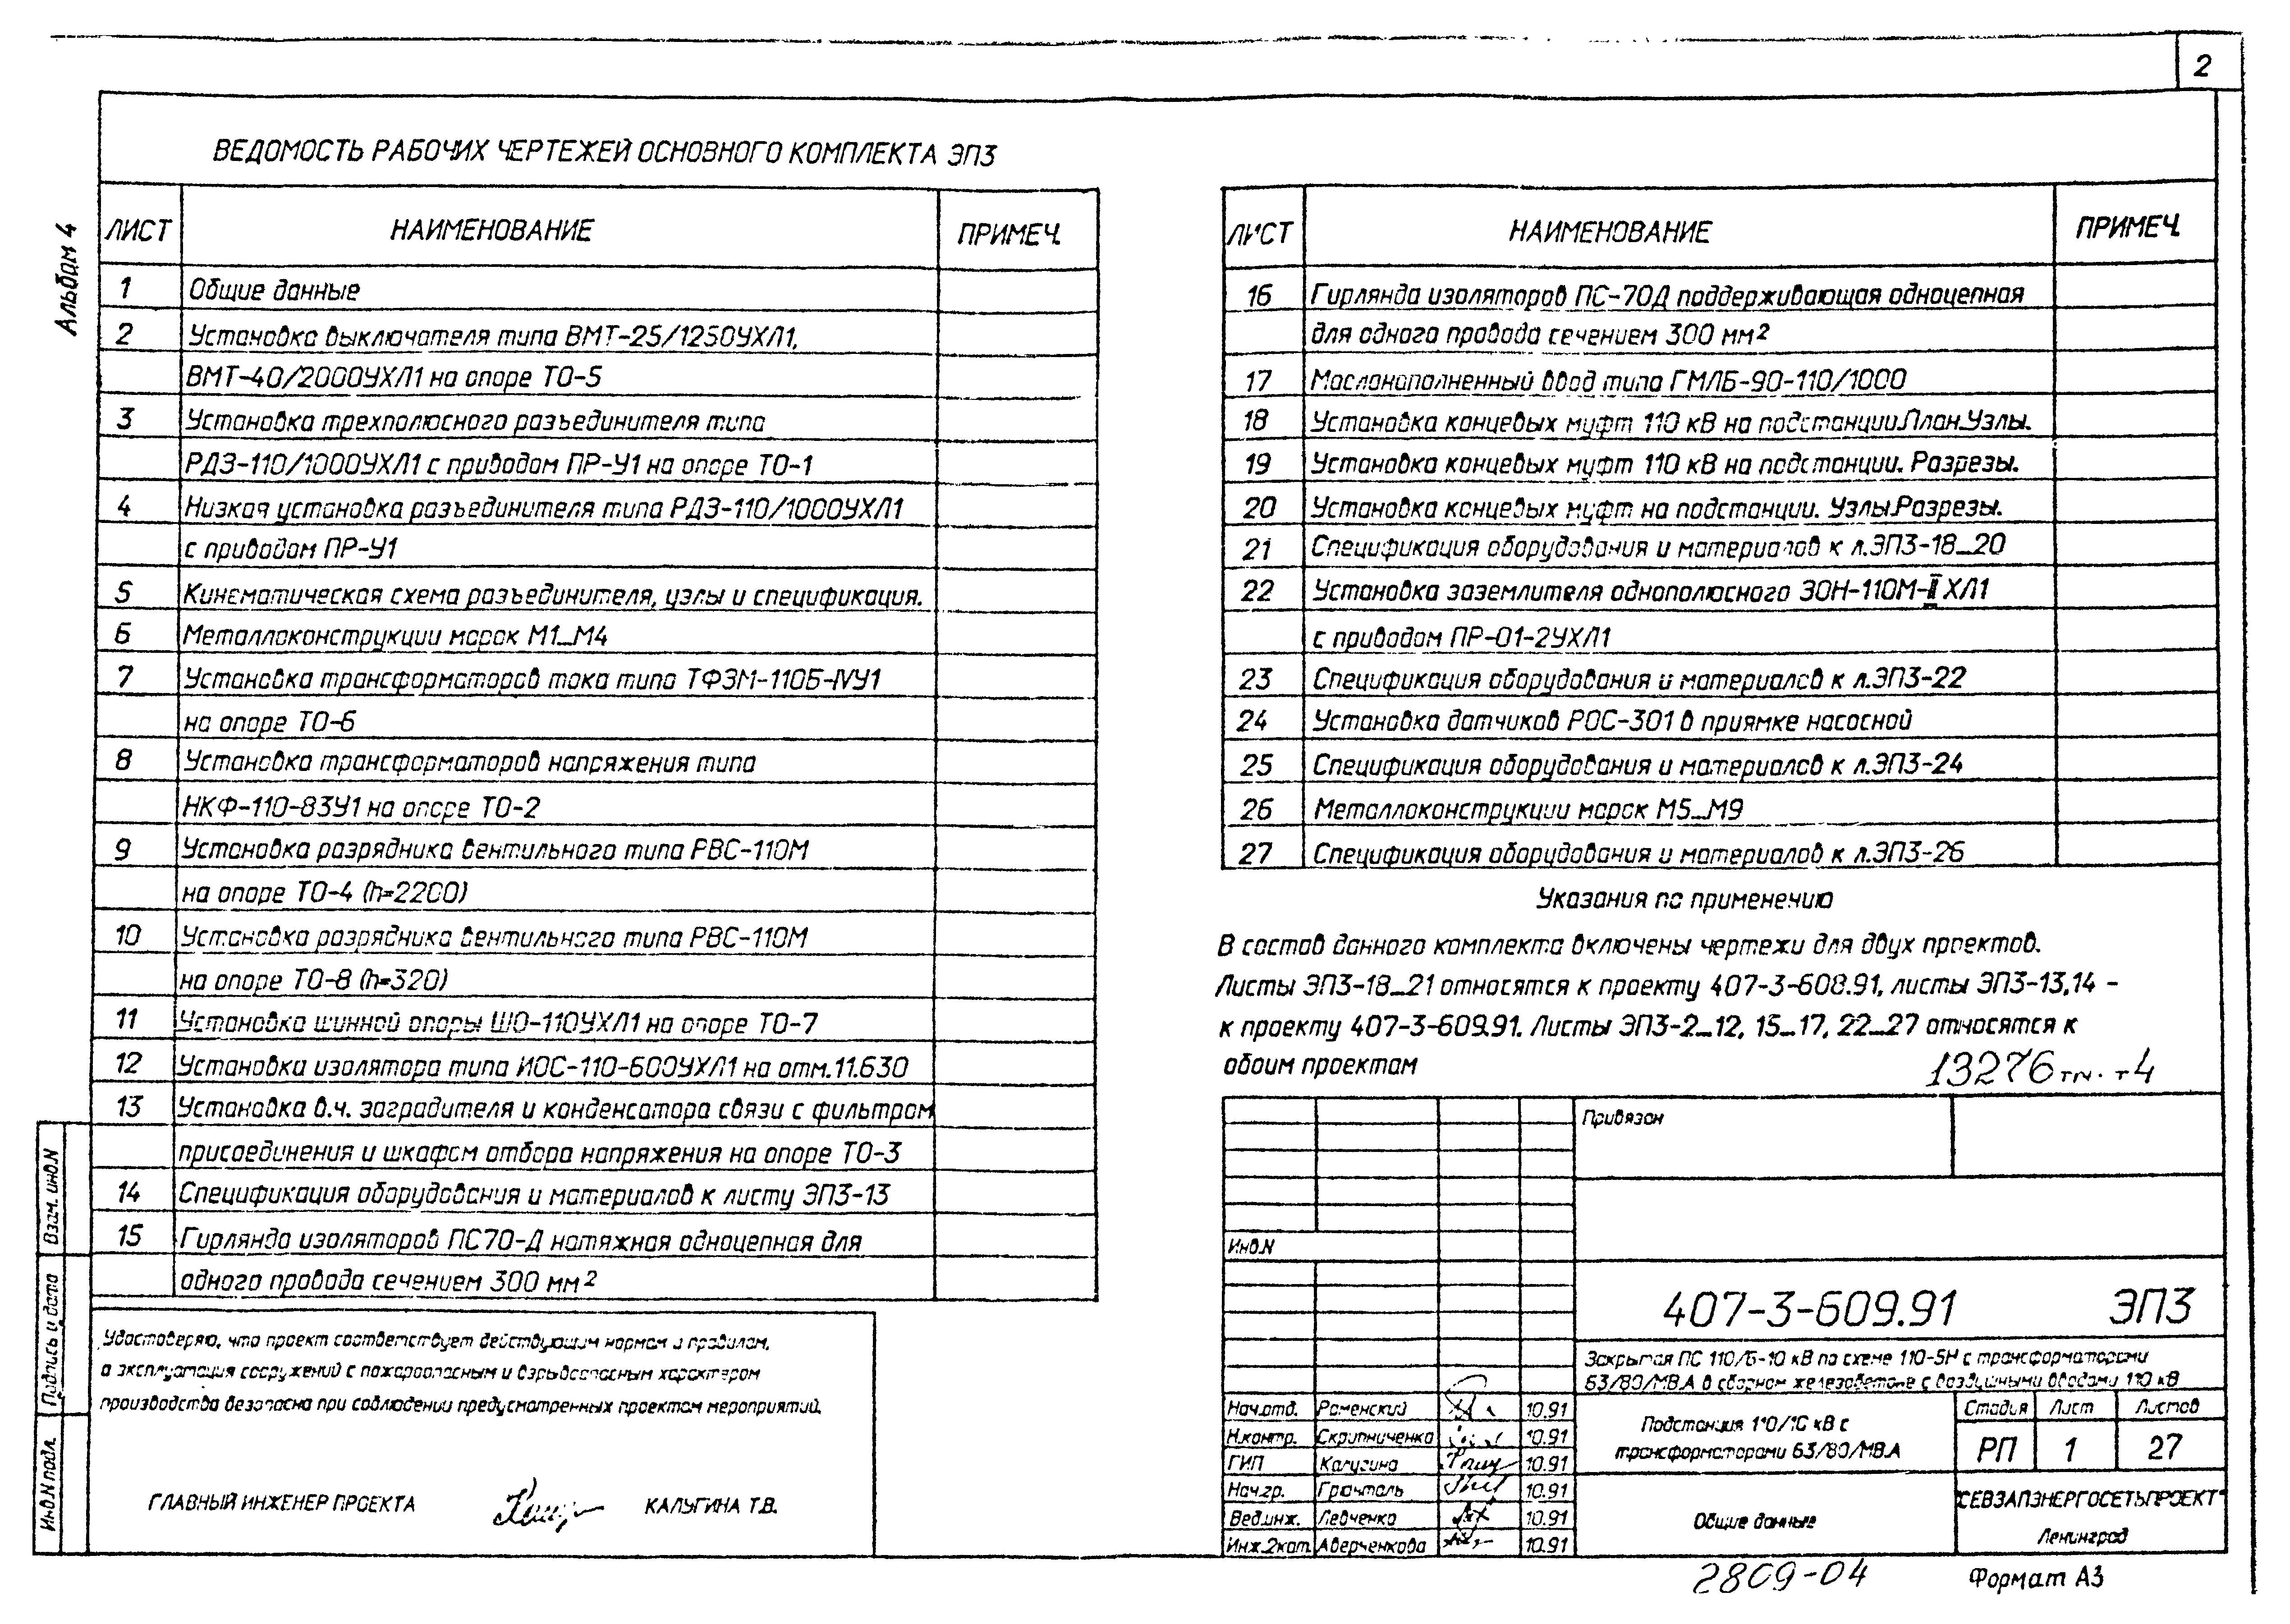 2
Альбом 4
ВЕДОМОСТЬ РАБОЧИХ ЧЕРТЕЖЕЙ ОСНОВНОГО КОМПЛЕКТА ЭП3
ЛИСТ НАИМЕНОВАНИЕ ПРИМЕЧ.
1 Общие данные
2 Установка выключателя типа ВМТ-25/1250УХЛ1,
ВМТ-40/2000УХЛ1 на опоре ТО-5
3 Установка трехполюсного разъединителя типа
РДЗ-110/1000УХЛ1 с приводом ПР-У1 на опоре ТО-1
4 Низкая установка разъединителя типа РДЗ-110/1000УХЛ1
с приводом ПР-У1
5 Кинематическая схема разъединителя, узлы и спецификация.
6 Металлоконструкции марок М1...М4
7 Установка трансформаторов тока типа ТФЗМ-110Б-IVУ1
на опоре ТО-6
8 Установка трансформаторов напряжения типа
НКФ-110-83У1 на опоре ТО-2
9 Установка разрядника вентильного типа РВС-110М
на опоре ТО-4 (h=2200)
10 Установка разрядника вентильного типа РВС-110М
на опоре ТО-8 (h=320)
11 Установка шинной опоры ШО-110УХЛ1 на опоре ТО-7
12 Установка изолятора типа ИОС-110-600УХЛ1 на отм.11.630
13 Установка в.ч. заградителя и конденсатора связи с фильтром
присоединения и шкафом отбора напряжения на опоре ТО-3
14 Спецификация оборудования и материалов к листу ЭП3-13
15 Гирлянда изоляторов ПС70-Д натяжная одноцепная для
одного провода сечением 300 мм²
ЛИСТ НАИМЕНОВАНИЕ ПРИМЕЧ.
16 Гирлянда изоляторов ПС-70Д поддерживающая одноцепная
для одного провода сечением 300 мм²
17 Маслонаполненный ввод типа ГМЛБ-90-110/1000
18 Установка концевых муфт 110 кВ на подстанции.План.Узлы.
19 Установка концевых муфт 110 кВ на подстанции. Разрезы.
20 Установка концевых муфт на подстанции. Узлы.Разрезы.
21 Спецификация оборудования и материалов к л.ЭП3-18...20
22 Установка заземлителя однополюсного ЗОН-110М-II ХЛ1
с приводом ПР-01-2УХЛ1
23 Спецификация оборудования и материалов к л.ЭП3-22
24 Установка датчиков РОС-301 в приямке насосной
25 Спецификация оборудования и материалов к л.ЭП3-24
26 Металлоконструкции марок М5...М9
27 Спецификация оборудования и материалов к л.ЭП3-26
Указания по применению
В состав данного комплекта включены чертежи для двух проектов.
Листы ЭП3-18...21 относятся к проекту 407-3-608.91, листы ЭП3-13,14 -
к проекту 407-3-609.91. Листы ЭП3-2...12, 15...17, 22...27 относятся к
обоим проектам
13276 тм. т4
Привязан
Инв.N
407-3-609.91 ЭП3
Закрытая ПС 110/6-10 кВ по схеме 110-5Н с трансформаторами
63/80/МВ.А в сборном железобетоне с воздушными вводами 110 кВ
Нач.отд. Роменский 10.91
Н.контр. Скрипниченко 10.91
ГИП Калугина 10.91
Нач.гр. Грюнталь 10.91
Вед.инж. Левченко 10.91
Инж.2кат. Аверченкова 10.91
Подстанция 110/10 кВ с
трансформаторами 63/80/МВ.А
Стадия Лист Листов
РП 1 27
Общие данные
"СЕВЗАПЭНЕРГОСЕТЬПРОЕКТ"
Ленинград
2809-04
Формат А3
Удостоверяю, что проект соответствует действующим нормам и правилам,
а эксплуатация сооружений с пожароопасным и взрывоопасным характером
производства безопасна при соблюдении предусмотренных проектом мероприятий.
ГЛАВНЫЙ ИНЖЕНЕР ПРОЕКТА КАЛУГИНА Т.В.
Взам. инв.N
Подпись и дата
Инв.N подл.